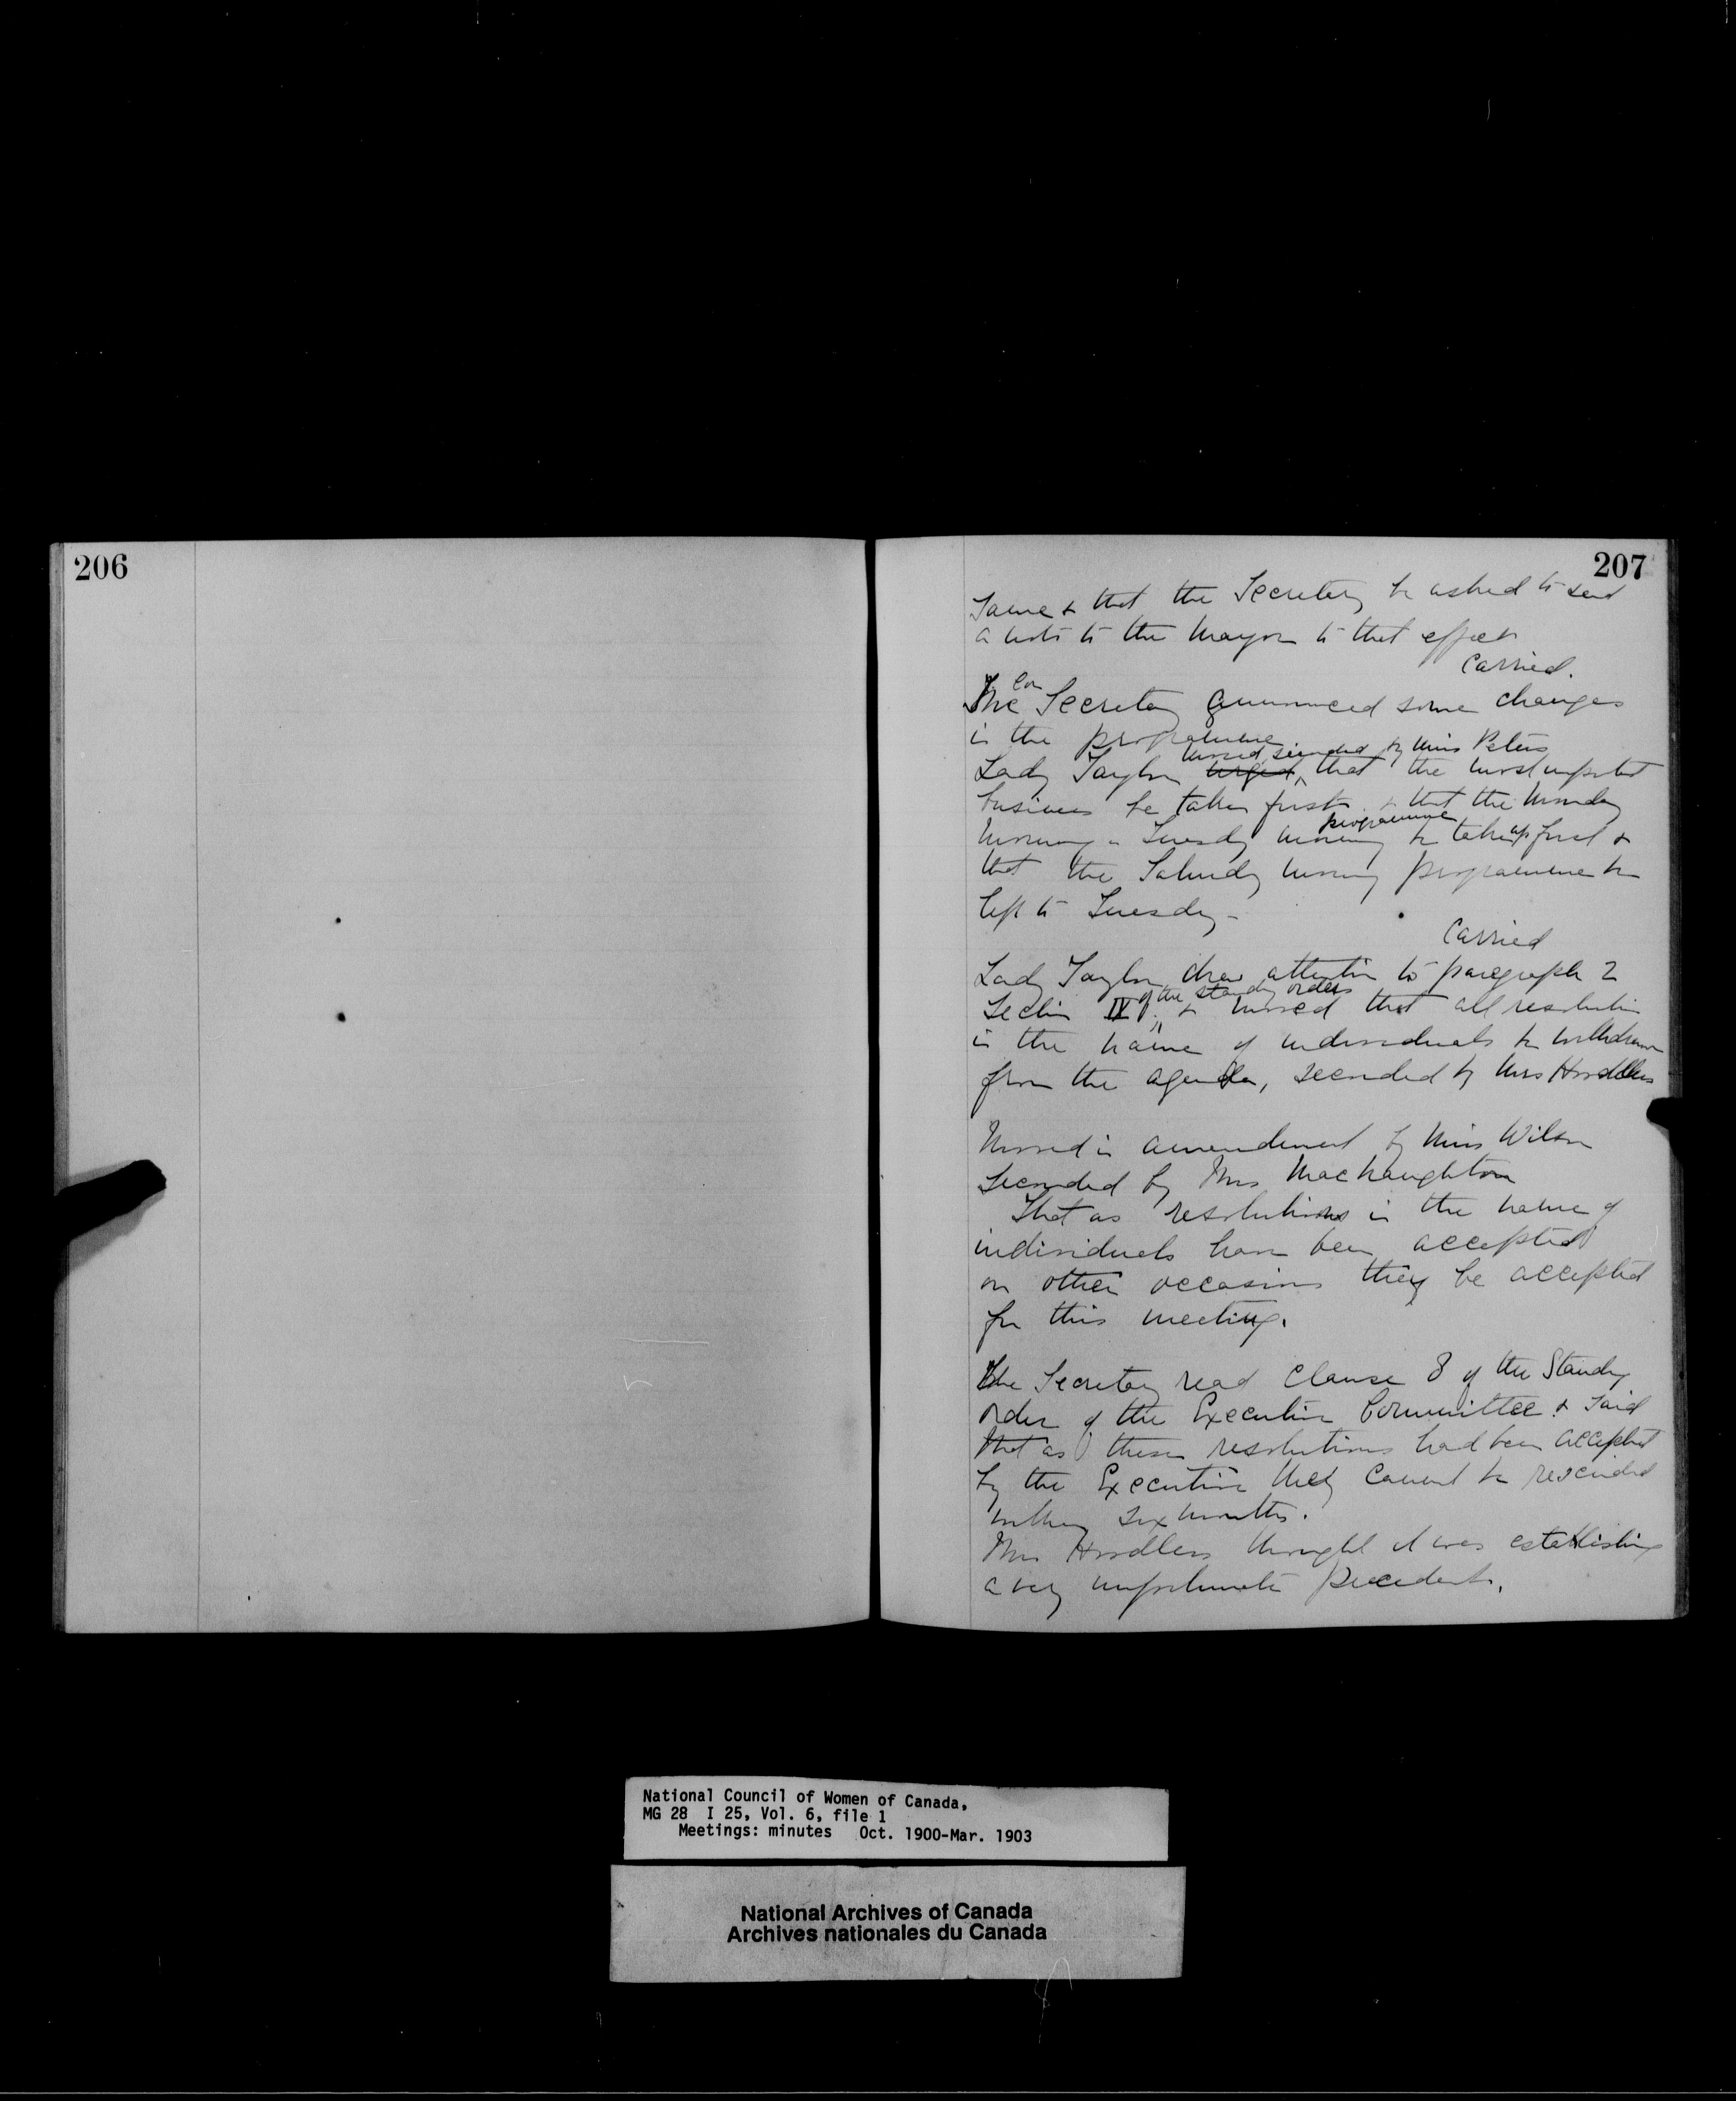 206
207
same & that the Secretary be asked to send
a note to the Mayor to that effect
Carried.
The Cor Secretary announced some changes
in the programme.
moved, seconded by Miss Peters
Lady Taylor urged, that the most important
business be taken first. & that the Monday
programme
morning & Tuesday morning be taken up first &
that the Saturday morning programme be
left to Tuesday -
Carried
Lady Taylor drew attention to paragraph 2
of the standing orders
Section IV & moved that all resolution
in the name of individuals be withdrawn
from the agenda, seconded by Mrs Hoodless
Moved in amendment by Miss Wilson
seconded by Mrs MacNaughton
That as resolutions in the name of
individuals have been accepted
on other occasions they be accepted
for this meeting.
The Secretary read Clause 8 of the Standing
order of the Executive Committee & said
that as these resolutions had been accepted
by the Executive they cannot be rescinded
within six months.
Mrs Hoodless thought it was establishing
a very unfortunate precedent.
National Council of Women of Canada,
MG 28 I 25, Vol. 6, file 1
Meetings: minutes Oct. 1900-Mar. 1903
National Archives of Canada
Archives nationales du Canada